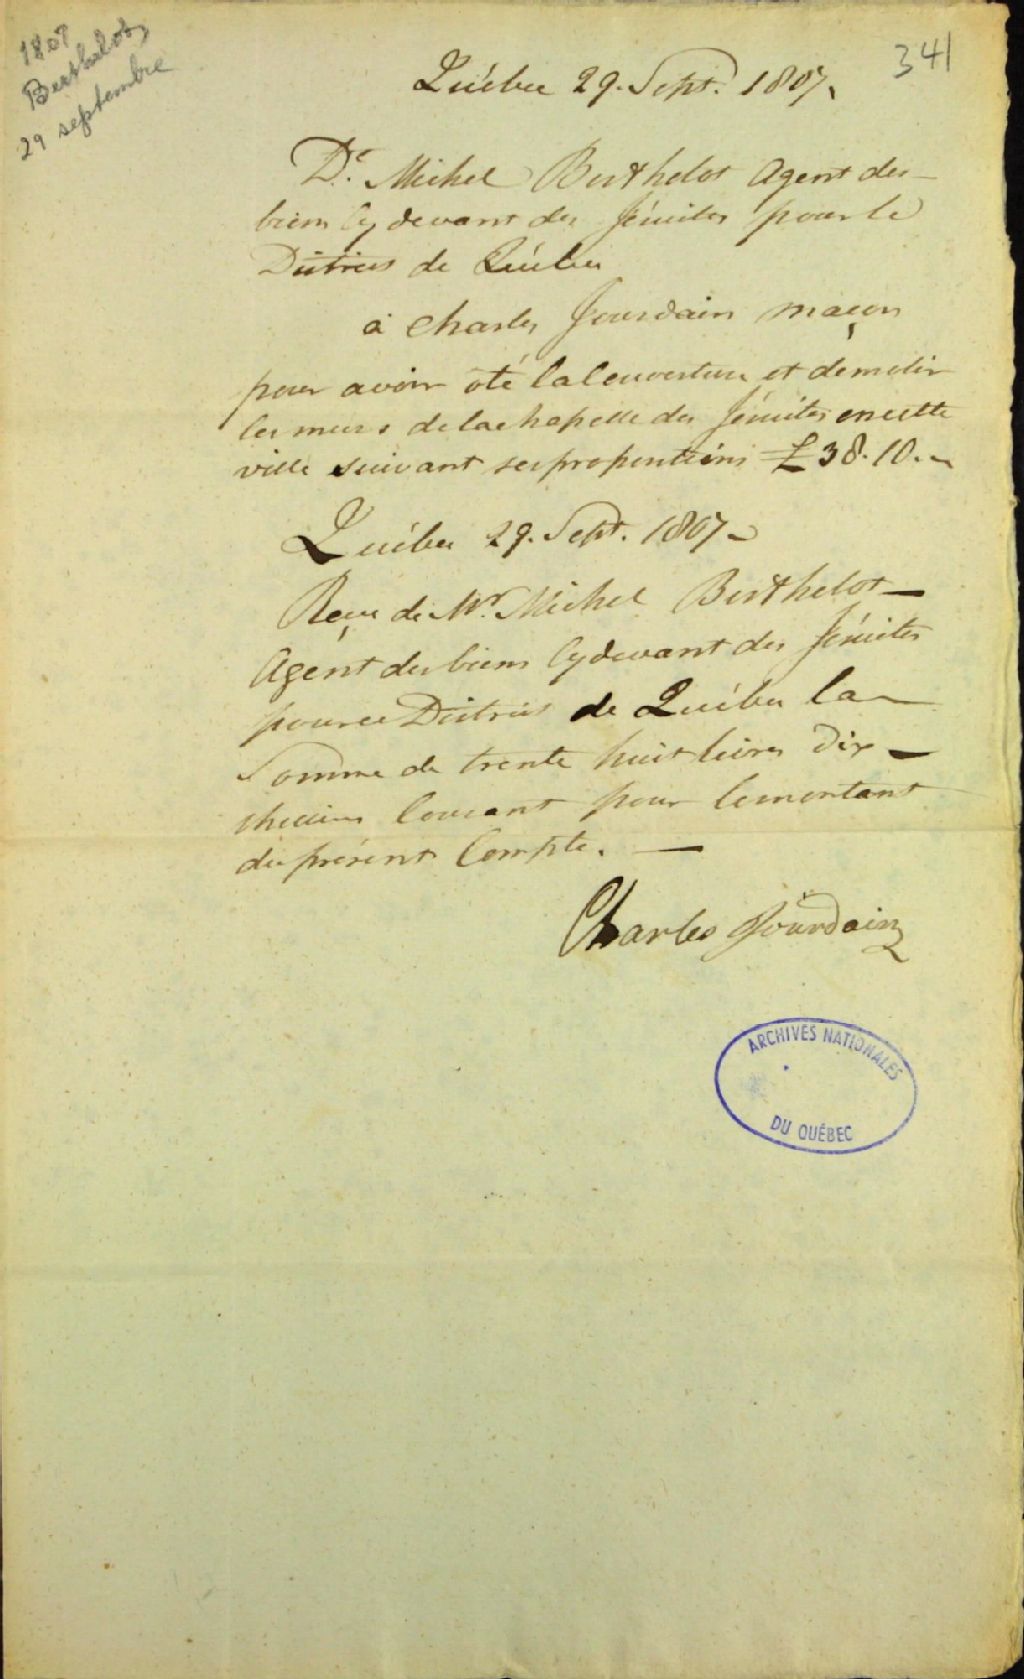 1807
Berthelot
29 septembre
341
Québec 29. Sept. 1807.
Dt. Michel Berthelot Agent des
biens Cy devant des Jésuites pour le
District de Québec
à Charles Jourdain maçon
pour avoir ôté la Couverture et démolir
les murs de la chapelle des Jésuites en cette
ville suivant ses propositions £38.10.
Québec 29. Sept. 1807
Reçu de Mr. Michel Berthelot
Agent des biens Cy devant des Jésuites
pour ce District de Québec la
Somme de trente huit livres dix
shellins Courant pour le montant
du présent Compte.
Charles Jourdain
ARCHIVES NATIONALES
DU QUÉBEC